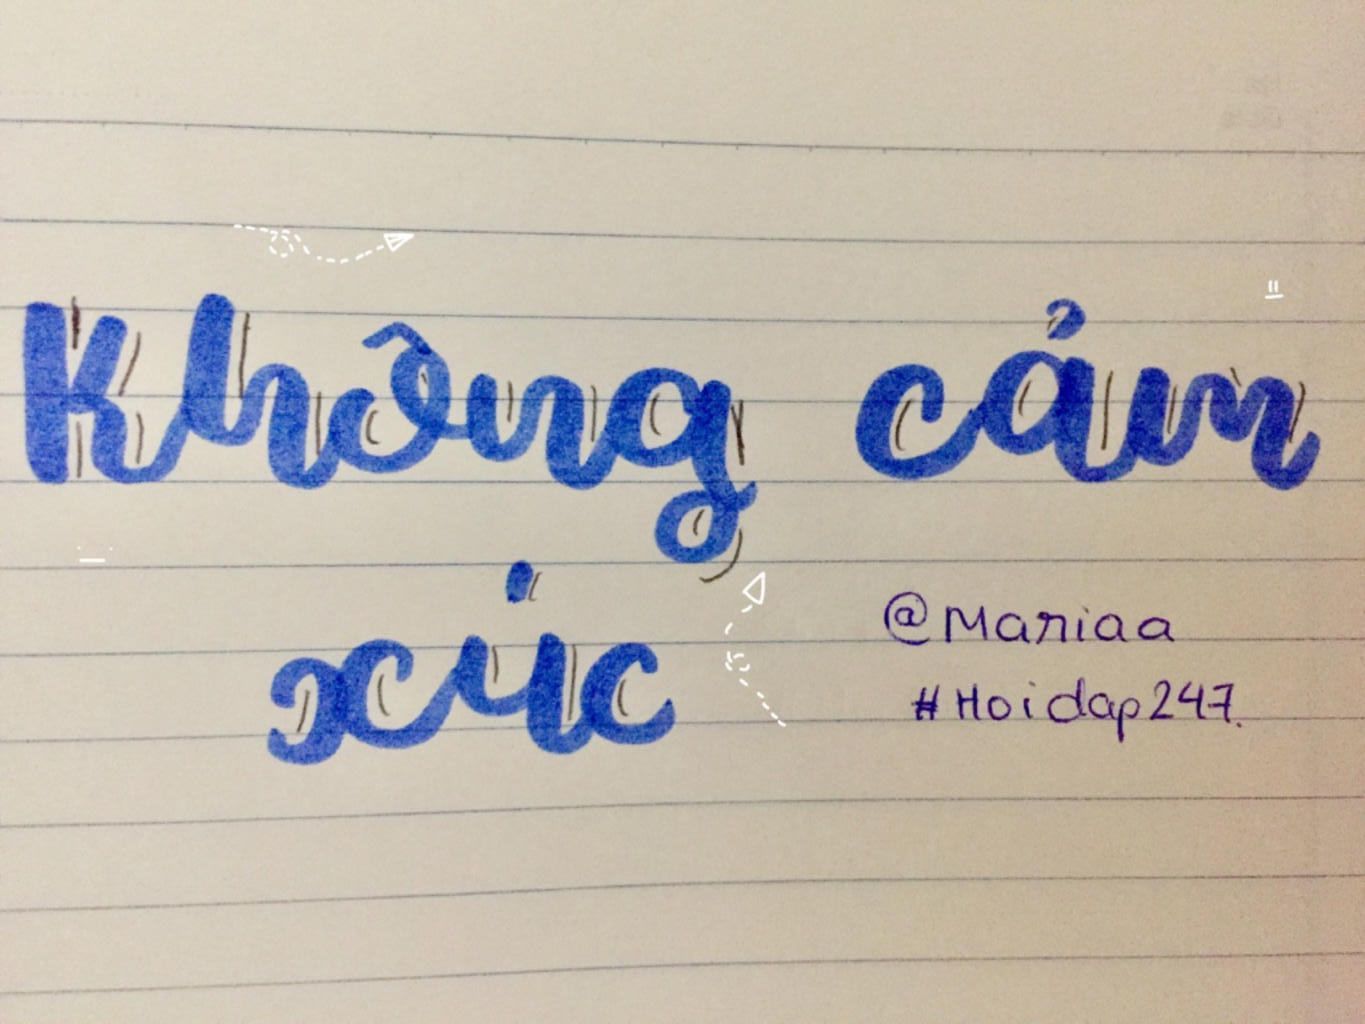 Không cảm
xúc
@Mariaa
#Hoidap247.